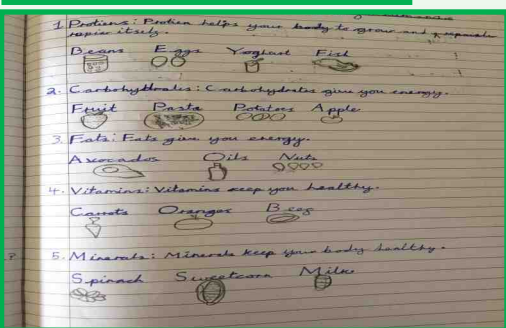 1. Protiens: Protien helps your body to grow and repair
repair itself.
Beans Eggs Yoghurt Fish
2. Carbohydrates: Carbohydrates give you energy.
Fruit Pasta Potatoes Apple
3. Fats: Fats give you energy.
Avocados Oils Nuts
4. Vitamins: Vitamins keep you healthy.
Carrots Oranges
5. Minerals: Minerals keep your body healthy.
Spinach Sweetcorn Milk